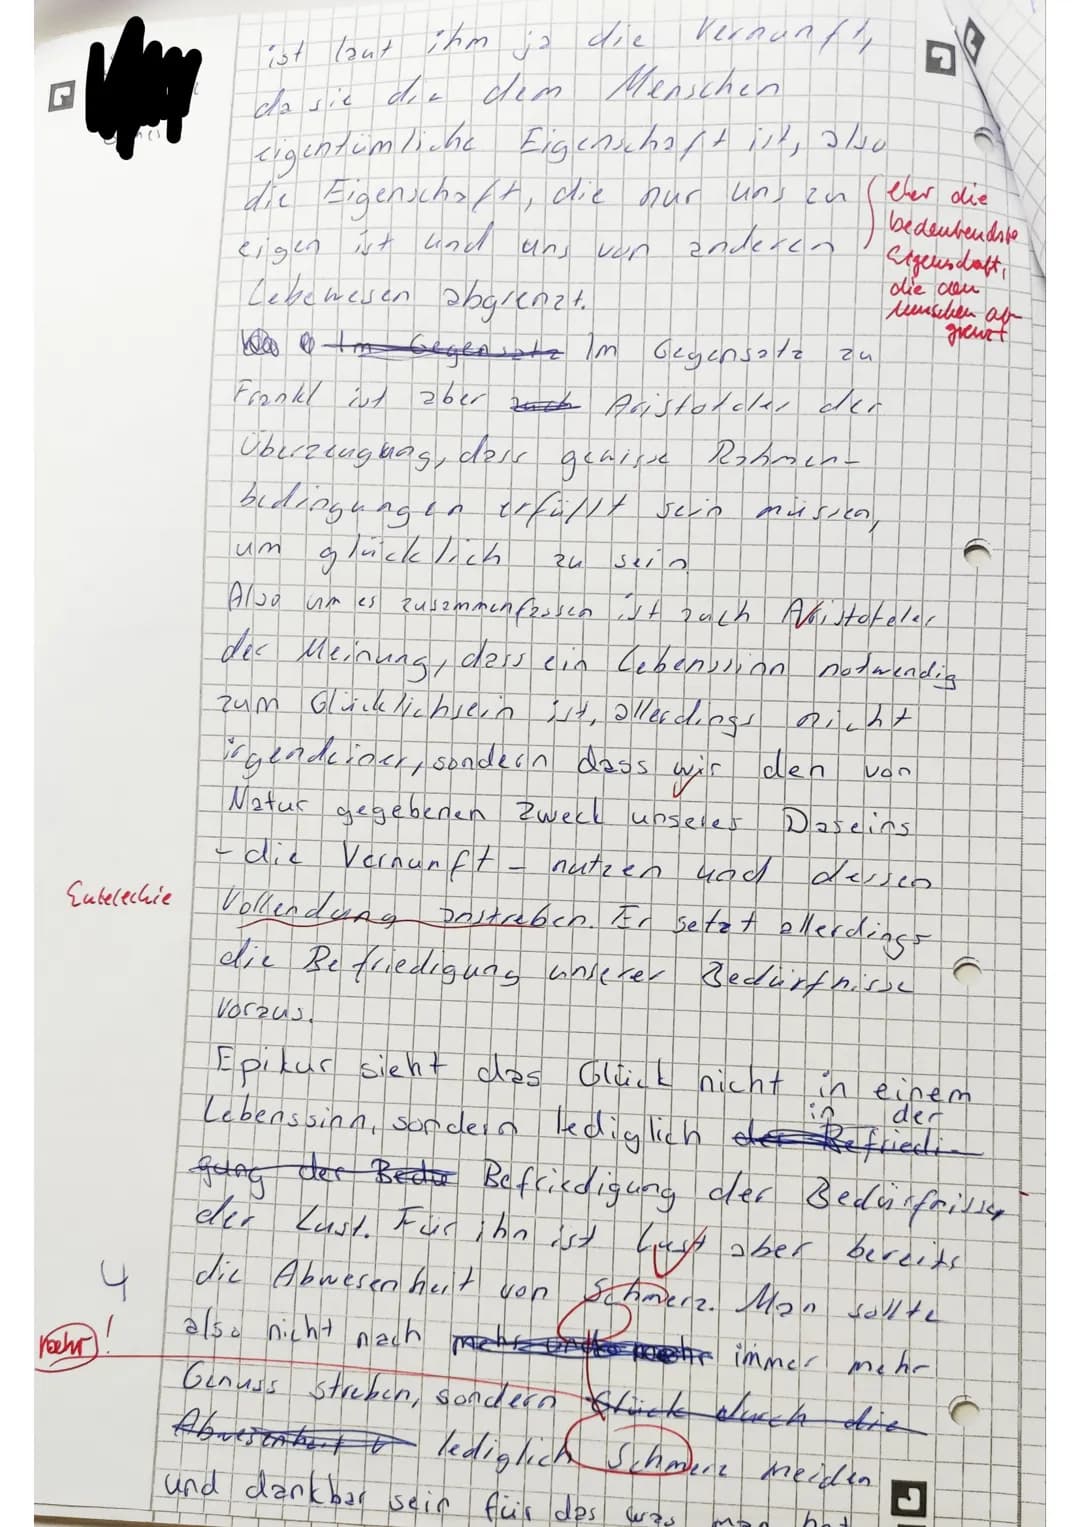 ist laut ihm ja die Vernunft,
da sie die dem Menschen
eigentümliche Eigenschaft ist, also
die Eigenschaft, die nur uns zu
eigen ist und uns von anderen
Lebewesen abgrenzt.
eher die
bedeutendste
Eigenschaft,
die den
Menschen ab-
grenzt
Im Gegensatz Im Gegensatz zu
Frankl ist aber auch Aristoteles der
Überzeugung, dass gewisse Rahmen-
bedingungen erfüllt sein müssen,
um glücklich zu sein
Also um es zusammenfassen ist auch Aristoteles
der Meinung, dass ein Lebenssinn notwendig
zum Glücklichsein ist, allerdings nicht
irgendeiner, sondern dass wir den von
Natur gegebenen Zweck unseres Daseins
- die Vernunft - nutzen und dessen
Entelechie
Vollendung anstreben. Er setzt allerdings
die Befriedigung unserer Bedürfnisse
voraus.
Epikur sieht das Glück nicht in einem
in der
Lebenssinn, sondern lediglich der Befriedi-
gung der Bedü Befriedigung der Bedürfnisse
der Lust. Für ihn ist Lust aber bereits
4 die Abwesenheit von Schmerz. Man sollte
mehr! also nicht nach mehr und mehr immer mehr
Genuss streben, sondern Glück durch die
Abwesenheit v lediglich Schmerz meiden
und dankbar sein für das was man hat